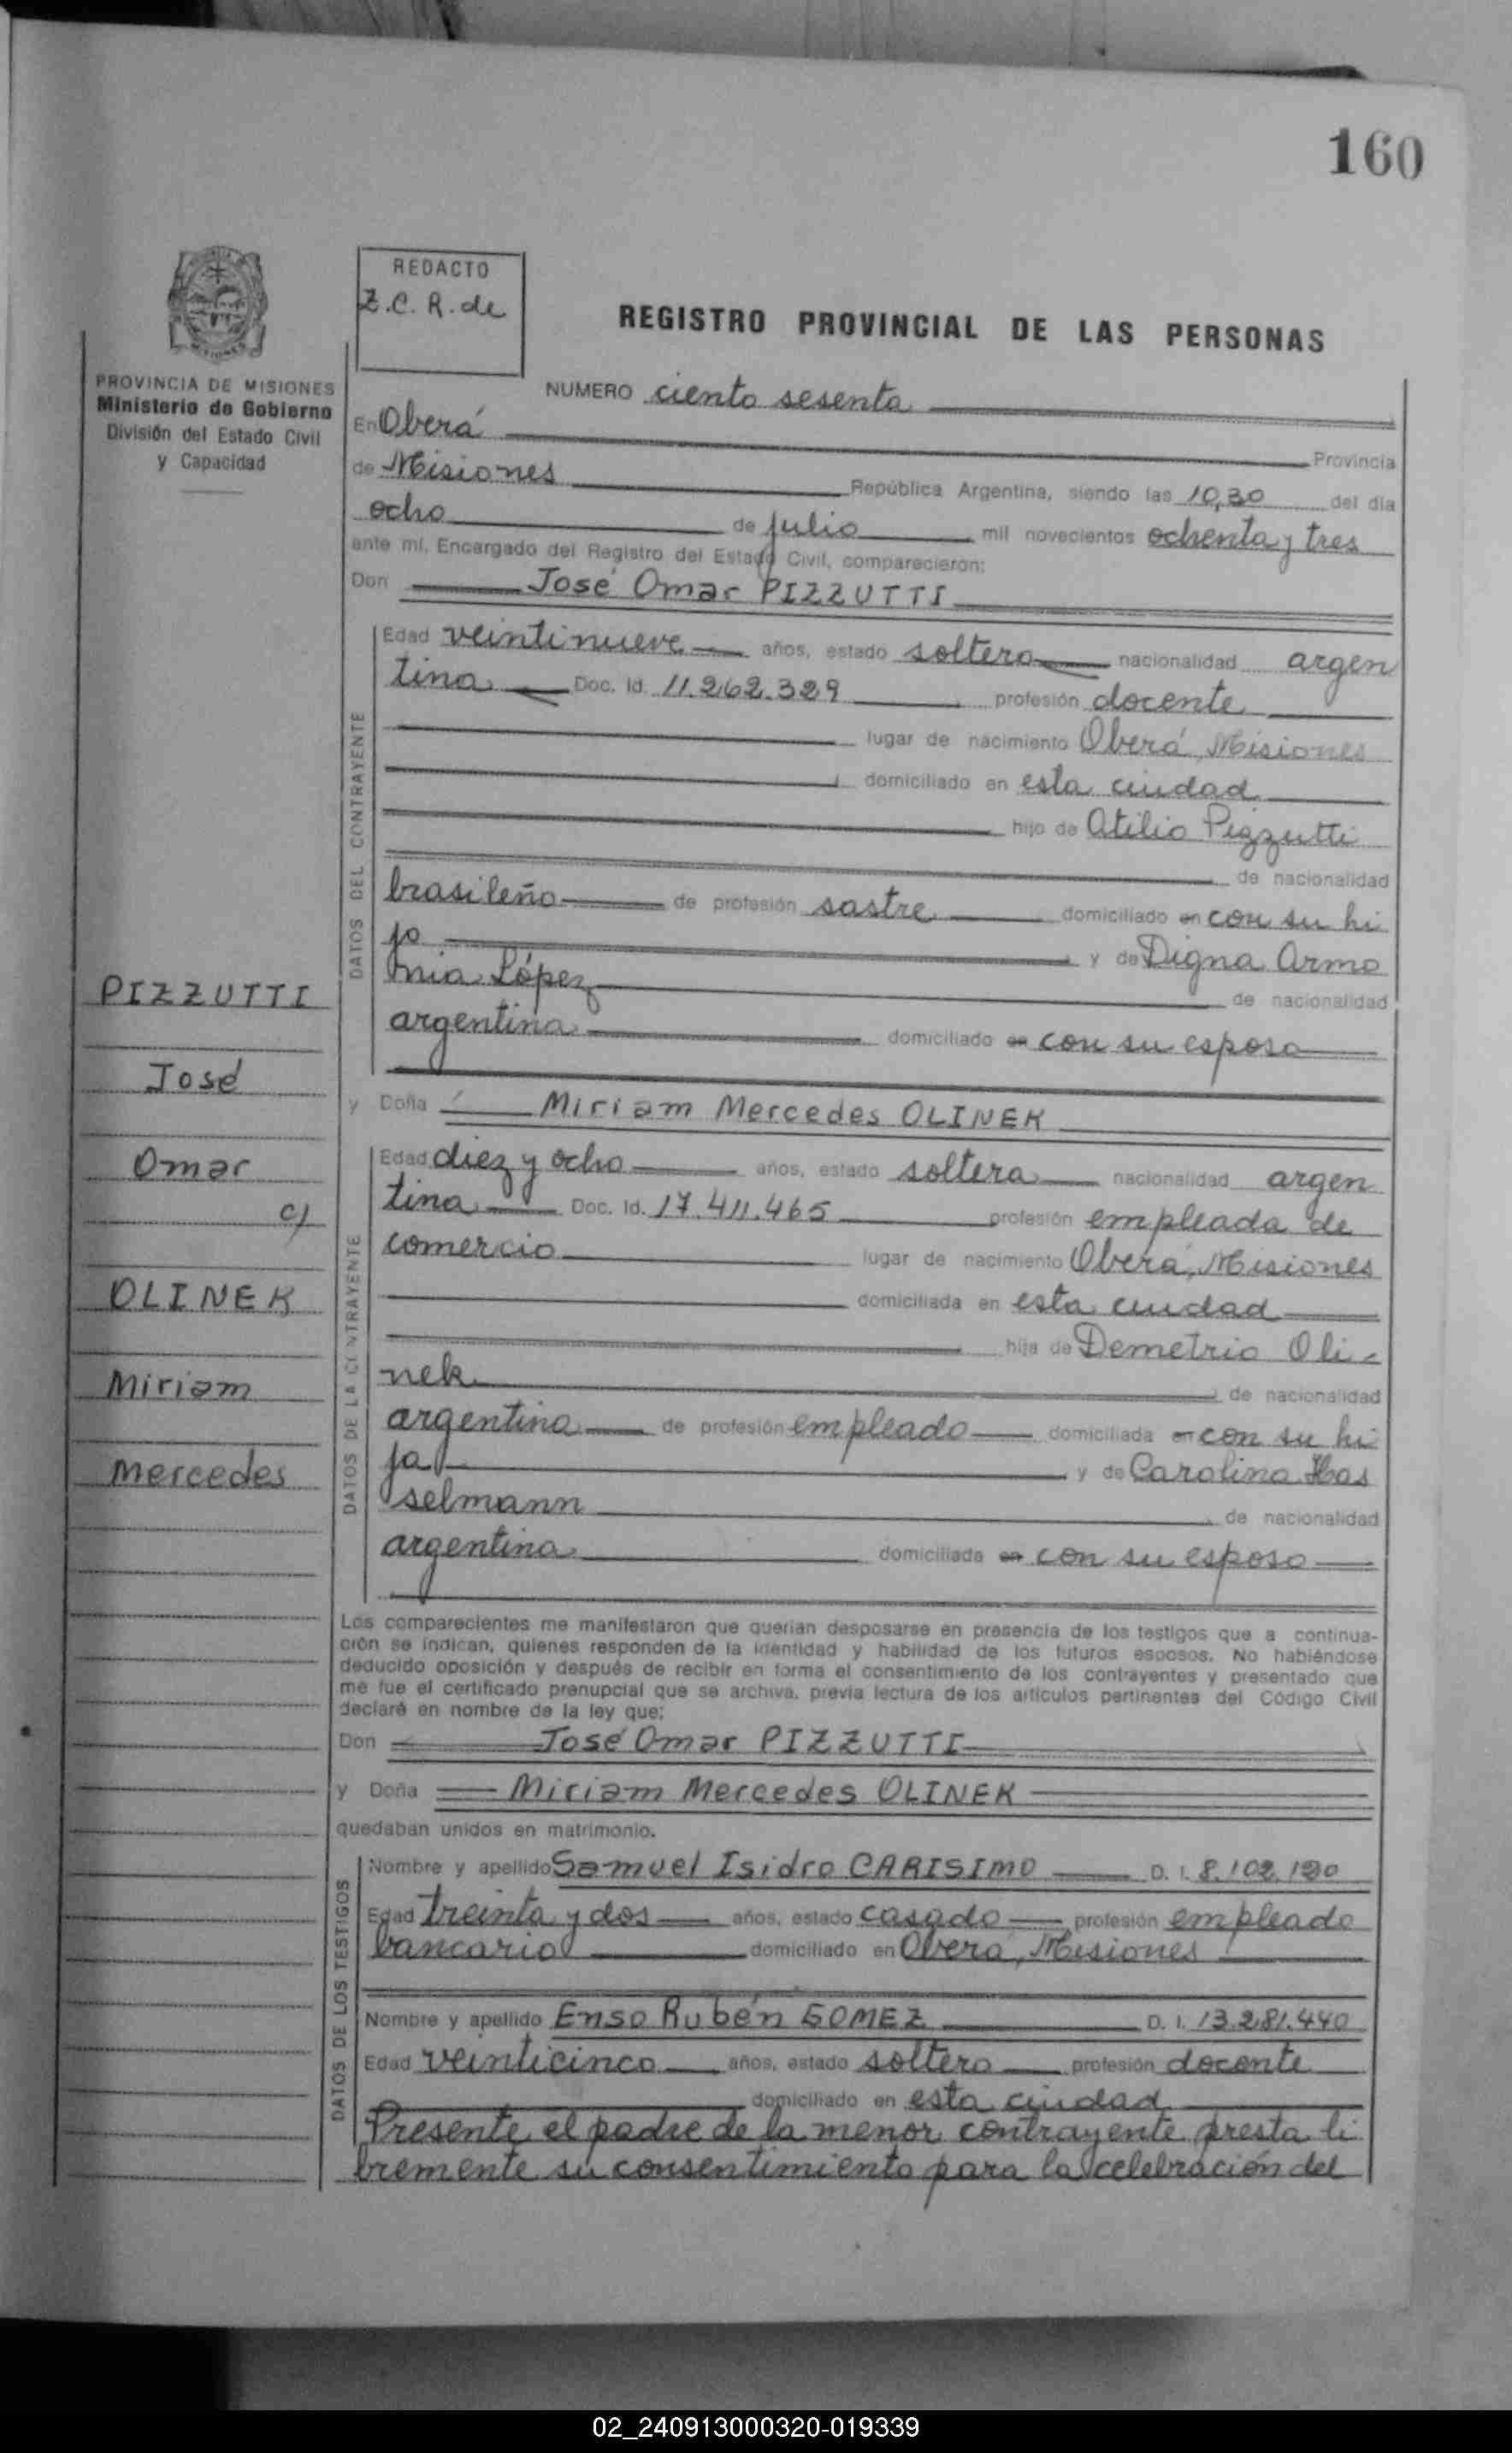 160
REDACTO
Z.C.R. de
REGISTRO PROVINCIAL DE LAS PERSONAS
PROVINCIA DE MISIONES
Ministerio de Gobierno
División del Estado Civil
y Capacidad
NUMERO ciento sesenta
En Oberá
Provincia
de Misiones República Argentina, siendo las 10,30 del día
ocho de julio mil novecientos ochenta y tres
ante mí, Encargado del Registro del Estado Civil, comparecieron:
Don José Omar PIZZUTTI
DATOS DEL CONTRAYENTE
Edad veintinueve años, estado soltero nacionalidad argen
tina Doc. Id. 11.262.329 profesión docente
lugar de nacimiento Oberá, Misiones
domiciliado en esta ciudad
hijo de Atilio Pizzutti
de nacionalidad
brasileño de profesión sastre domiciliado en con su hi
jo y de Digna Armo
nia López de nacionalidad
argentina domiciliado en con su esposo
PIZZUTTI
José
Omar
c/
OLINEK
Miriam
Mercedes
y Doña Miriam Mercedes OLINEK
DATOS DE LA CONTRAYENTE
Edad diez y ocho años, estado soltera nacionalidad argen
tina Doc. Id. 17.411.465 profesión empleada de
comercio lugar de nacimiento Oberá, Misiones
domiciliada en esta ciudad
hija de Demetrio Oli-
nek de nacionalidad
argentina de profesión empleado domiciliada en con su hi
ja y de Carolina Has
selmann de nacionalidad
argentina domiciliada en con su esposo
Los comparecientes me manifestaron que querían desposarse en presencia de los testigos que a continua-
ción se indican, quienes responden de la identidad y habilidad de los futuros esposos. No habiéndose
deducido oposición y después de recibir en forma el consentimiento de los contrayentes y presentado que
me fue el certificado prenupcial que se archiva, previa lectura de los artículos pertinentes del Código Civil
declaré en nombre de la ley que:
Don José Omar PIZZUTTI
y Doña Miriam Mercedes OLINEK
quedaban unidos en matrimonio.
DATOS DE LOS TESTIGOS
Nombre y apellido Samuel Isidro CARISIMO D. I. 8.102.190
Edad treinta y dos años, estado casado profesión empleado
bancario domiciliado en Oberá, Misiones
Nombre y apellido Enso Rubén GOMEZ D. I. 13.281.440
Edad veinticinco años, estado soltero profesión docente
domiciliado en esta ciudad
Presente el padre de la menor contrayente presta li
bremente su consentimiento para la celebración del
02_240913000320-019339